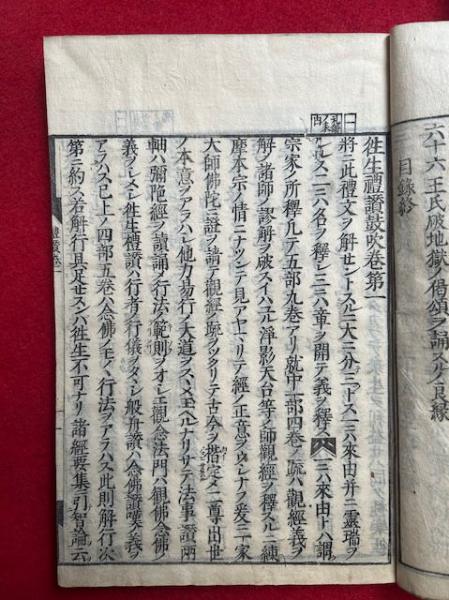 六十六王氏破地獄ノ偈頌ヲ誦スルノ良縁
目録終
往生禮讃鼓吹巻第一
將ニ此禮文ヲ解セントスルニ大ニ分テ三トス一ニハ來由并ニ靈瑞ヲ
アラハシ二ニハ名ヲ釋シ三ニハ章ヲ開テ義ヲ釋ス 一ニ來由トハ謂ク
宗家ノ所釋凡テ五部九巻アリ就中一部四巻ノ疏ハ觀經ノ義ヲ
解ノ諸師ノ謬解ヲ破スイハユル淨影天台等ノ師觀經ヲ釋スルニ
摩本宗ノ情ニナツンテ見アヤマリテ經ノ正意ヲウシナフ爰ニ家
大師佛陀ニ證ヲ請テ觀經ノ疏ヲツクリテ古今ヲ揩定メ二尊出世
ノ本意ヲアラハシ他力易行ノ大道ヲスヽメ玉ヘルナリサテ法事讃兩
軸ハ彌陀經ヲ讀誦ノ行法ノ範則ヲオシエ觀念法門ハ觀佛念佛ノ
義ヲシメシ往生禮讃ハ行者ノ行儀ヲタヽシ般舟讃ハ念佛讃嘆ノ義ヲ
アラハス已上ノ四部五巻ハ念佛ノモノヽ行法ヲアラハス此則解行次
第ニ約ス若解行具足セスンバ往生不可ナリ諸經要集ニ引智論云